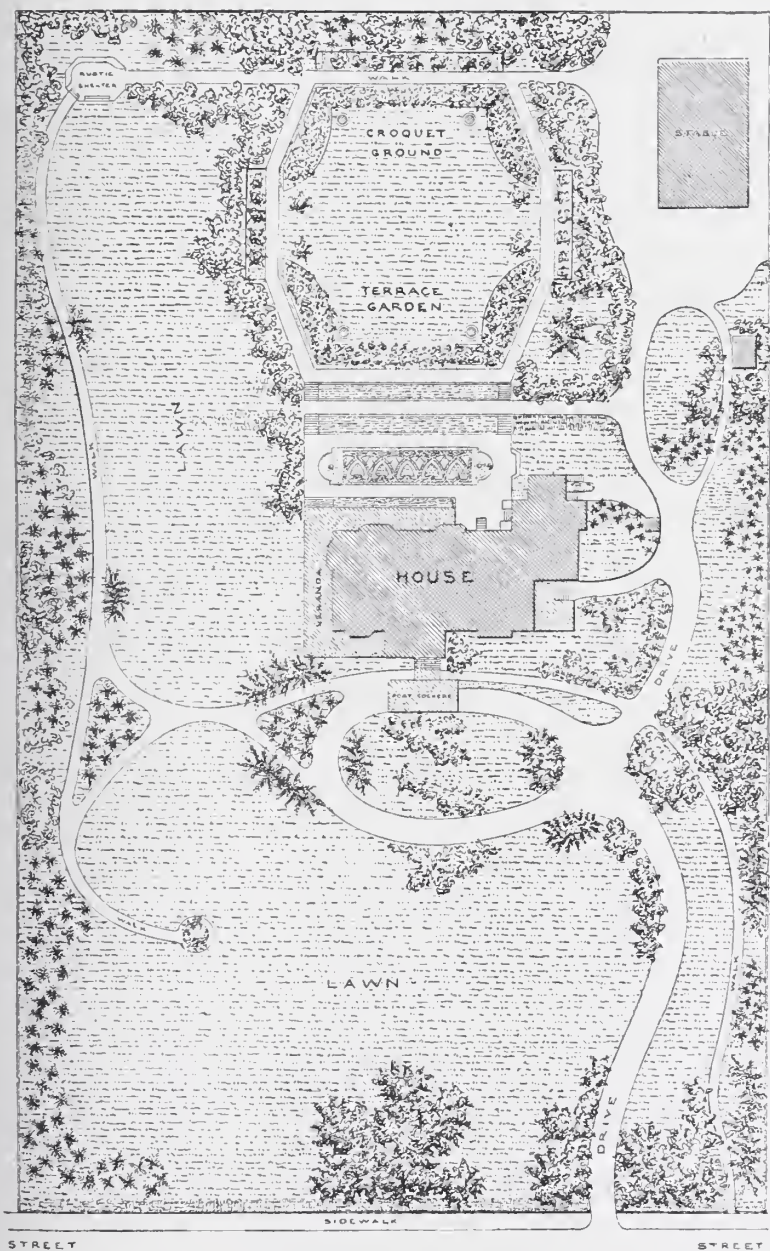 RUSTIC
SHELTER
WALK
STABLE
CROQUET
GROUND
TERRACE
GARDEN
LAWN
WALK
HOUSE
VERANDA
DRIVE
PORT COCHERE
WALK
LAWN
WALK
DRIVE
SIDEWALK
STREET
STREET